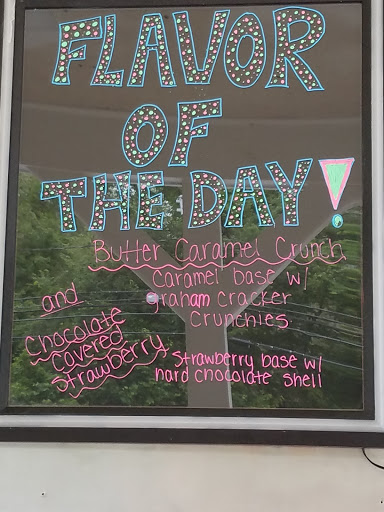 FLAVOR
OF
THE DAY!
Butter Caramel Crunch
Caramel base w/
graham cracker
Crunchies
and
Chocolate
covered
strawberry
strawberry base w/
hard chocolate shell